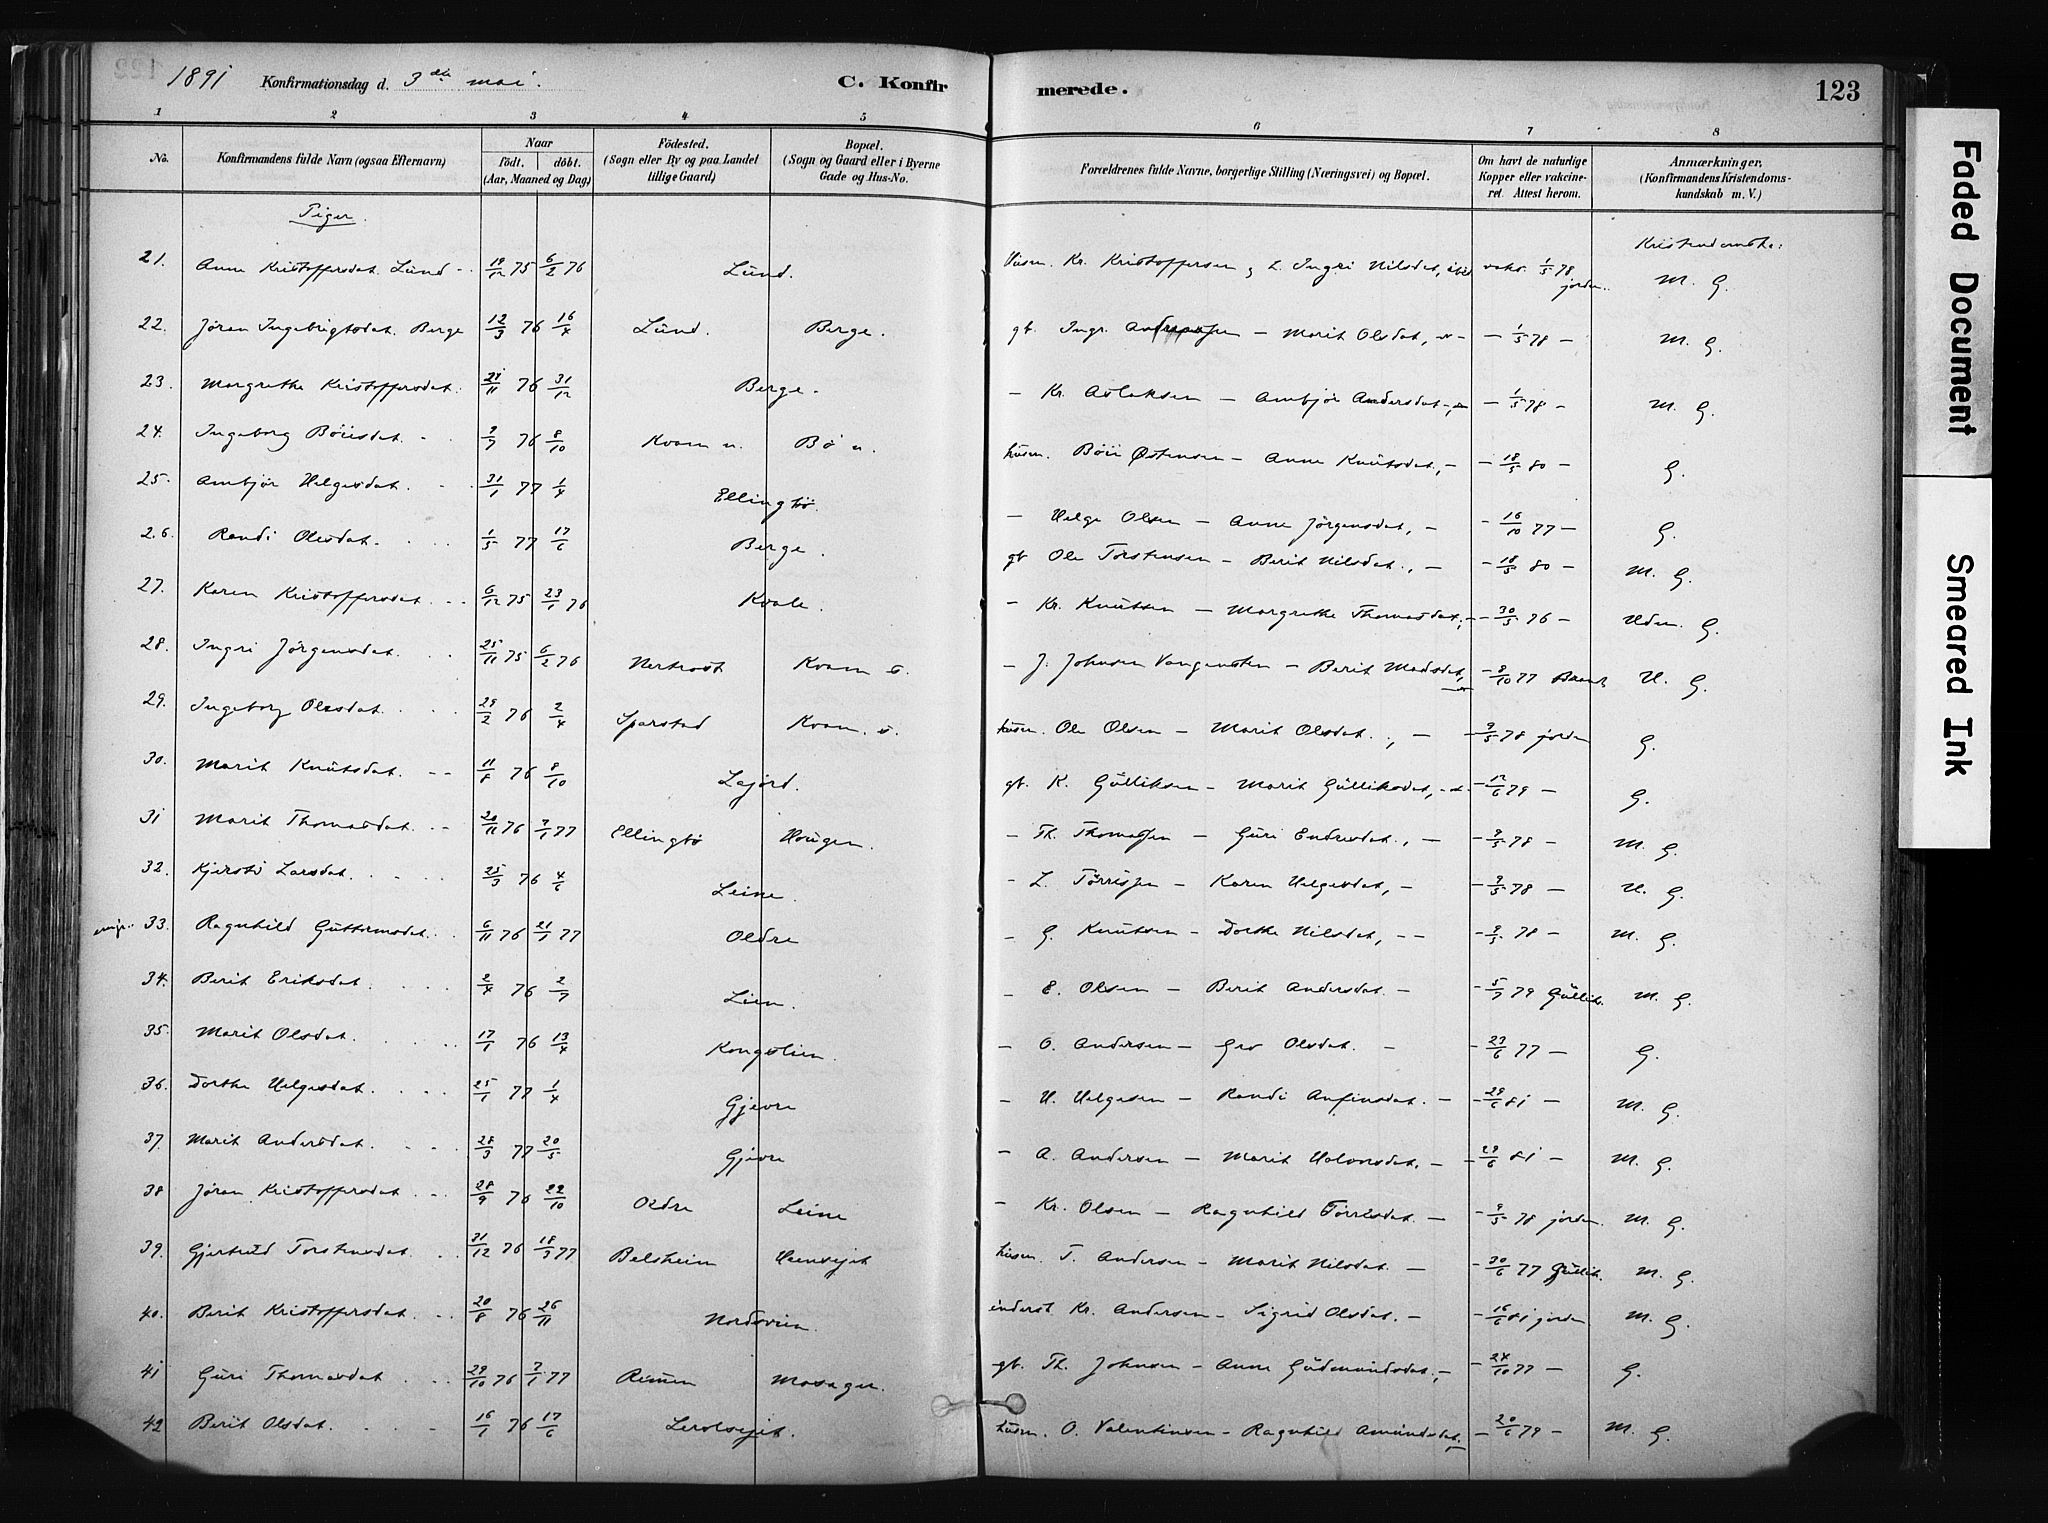 1891 Konfirmationsdag d. 3die mai. C. Konfirmerede. 123
1 2 3 4 5 6 7 8
No. Konfirmandens fulde Navn (ogsaa Efternavn) Naar födt. döbt. (Aar, Maaned og Dag) Födested. (Sogn eller By og paa Landet tillige Gaard) Bopæl. (Sogn og Gaard eller i Byerne Gade og Hus-No. Forældrenes fulde Navne, borgerlige Stilling (Næringsvei) og Bopæl. Om havt de naturlige Kopper eller vakcineret. Attest herom. Anmærkninger, (Konfirmandens Kristendomskundskab m. V.)
Piger.
Kristendomsk:
21. Anne Kristoffersdat. Lund 19/12 75 6/2 76 Lund. Kr. Kristoffersen & Ingri Nilsdat, vaks. 1/5 78 jorden. M. G.
22. Jøran Ingebrigtsdat. Berge 12/3 76 16/4 Lund. Berge. gb. Ingr. - Marit Olsdat, - 1/5 78 - M. G.
23. Margrethe Kristoffersdat. 24/11 76 31/12 Berge. - Kr. Aslaksen - Ambjør Andersdat - 1/5 78 - M. G.
24. Ingeborg Böiesdat. 76 8/10 Kvam n. Bö n. husm. Böie Østensen - Anne Knutsdat, - 18/5 80 - G.
25. Ambjør Helgesdat. 31/1 77 1/4 Ellingbö. - Helge Olsen - Anne Jörgensdat, - 16/10 77 - G.
26. Randi Olesdat. 1/5 77 17/6 Berge. gb Ole Torstensen - Berit Nilsdat., - 18/5 80 - M. G.
27. Karen Kristoffersdat. 6/12 75 23/1 76 Kvale. - Kr. Knutsen - Margrethe Thomasdat, - 30/5 76 - Uden. G.
28. Ingri Jörgensdat. 25/11 75 6/2 76 Nertrost Kvam - J. Johnsen Vangensten - Berit Madsdat, - 8/10 77 U. G.
29. Ingeborg Olesdat. 29/2 76 2/4 Sparstad Kvam. husm. Ole Olsen - Marit Olsdat., - 9/5 78 jorden G.
30. Marit Knutsdat. 11/8 76 8/10 Lajord. gb. K. Gulliksen - Marit Gulliksdat, - 12/6 79 - G.
31 Marit Thomasdat. 20/11 76 7/1 77 Ellingbö Hougen. - Th. Thomassen - Guri Endresdat., - 9/5 78 - M. G.
32. Kjersti Larsdat. 25/3 76 4/6 Leine. - L. Törrissen - Karen Helgesdat, - 9/5 78 - U. G.
33. Ragnhild Guttormsdat. 6/11 76 21/1 77 Oldre - G. Knutsen - Dorthe Nilsdat, - 9/5 78 - M. G.
34. Berit Eriksdat. 2/4 76 2/7 Lien. - E. Olsen - Berit Andersdat. - 5/7 79 Gullik. M. G.
35. Marit Olsdat. 17/1 76 13/4 Kongslien. - O. Andersen - Gro Olsdat. - 23/6 77 - G.
36. Dorthe Helgesdat. 25/1 77 1/4 Gjevre - H. Helgesen - Randi Anfinsdat. - 29/6 81 - M. G.
37. Marit Andersdat. 28/3 77 20/5 Gjevre - A. Andersen - Marit Halvorsdat. - 29/6 81 - M. G.
38 Jøran Kristoffersdat. 28/9 76 22/10 Oldre Leine - Kr. Olsen - Ragnhild Törrisdat. - 9/5 78 jorden. M. G.
39. Gjertrud Torstensdat. 31/12 76 18/3 77 Belsheim husm. T. Andersen - Marit Nilsdat. - 30/6 77 Gullik. M. G.
40. Berit Kristoffersdat. 20/8 76 26/11 Nordsveen. inderst Kr. Andersen - Sigrid Olsdat. - 16/6 81 jorden M. G.
41 Guri Thomasdat. 29/10 76 7/1 77 Remen Mosager. gb. Th. Johnsen - Anne Gudmundsdat., - 24/10 77 - G.
42 Berit Olsdat. 16/1 76 17/6 husm. O. Valentinsen - Ragnhild Amundsdat. - 20/6 79 - M. G.
Faded Document
Smeared Ink